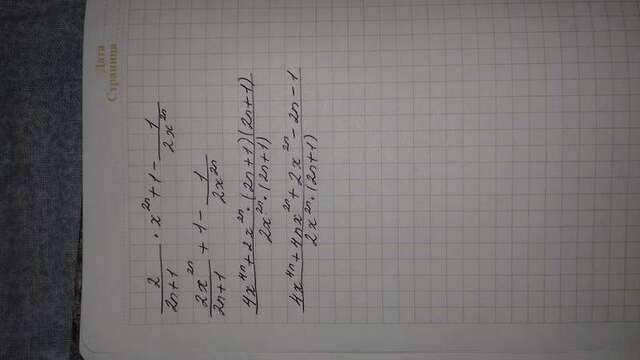 Дата
Страница
2/(2n+1) · x^{2n} + 1 - 1/(2x^{2n})
2x^{2n}/(2n+1) + 1 - 1/(2x^{2n})
(4x^{4n} + 2x^{2n} · (2n+1)(2n+1))/(2x^{2n} · (2n+1))
(4x^{4n} + 4nx^{2n} + 2x^{2n} - 2n - 1)/(2x^{2n} · (2n+1))